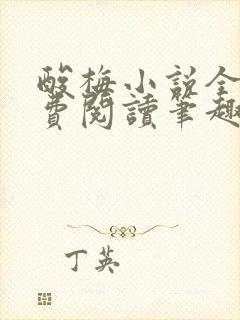 酸梅小说全
費閱讀筆趣
丁英